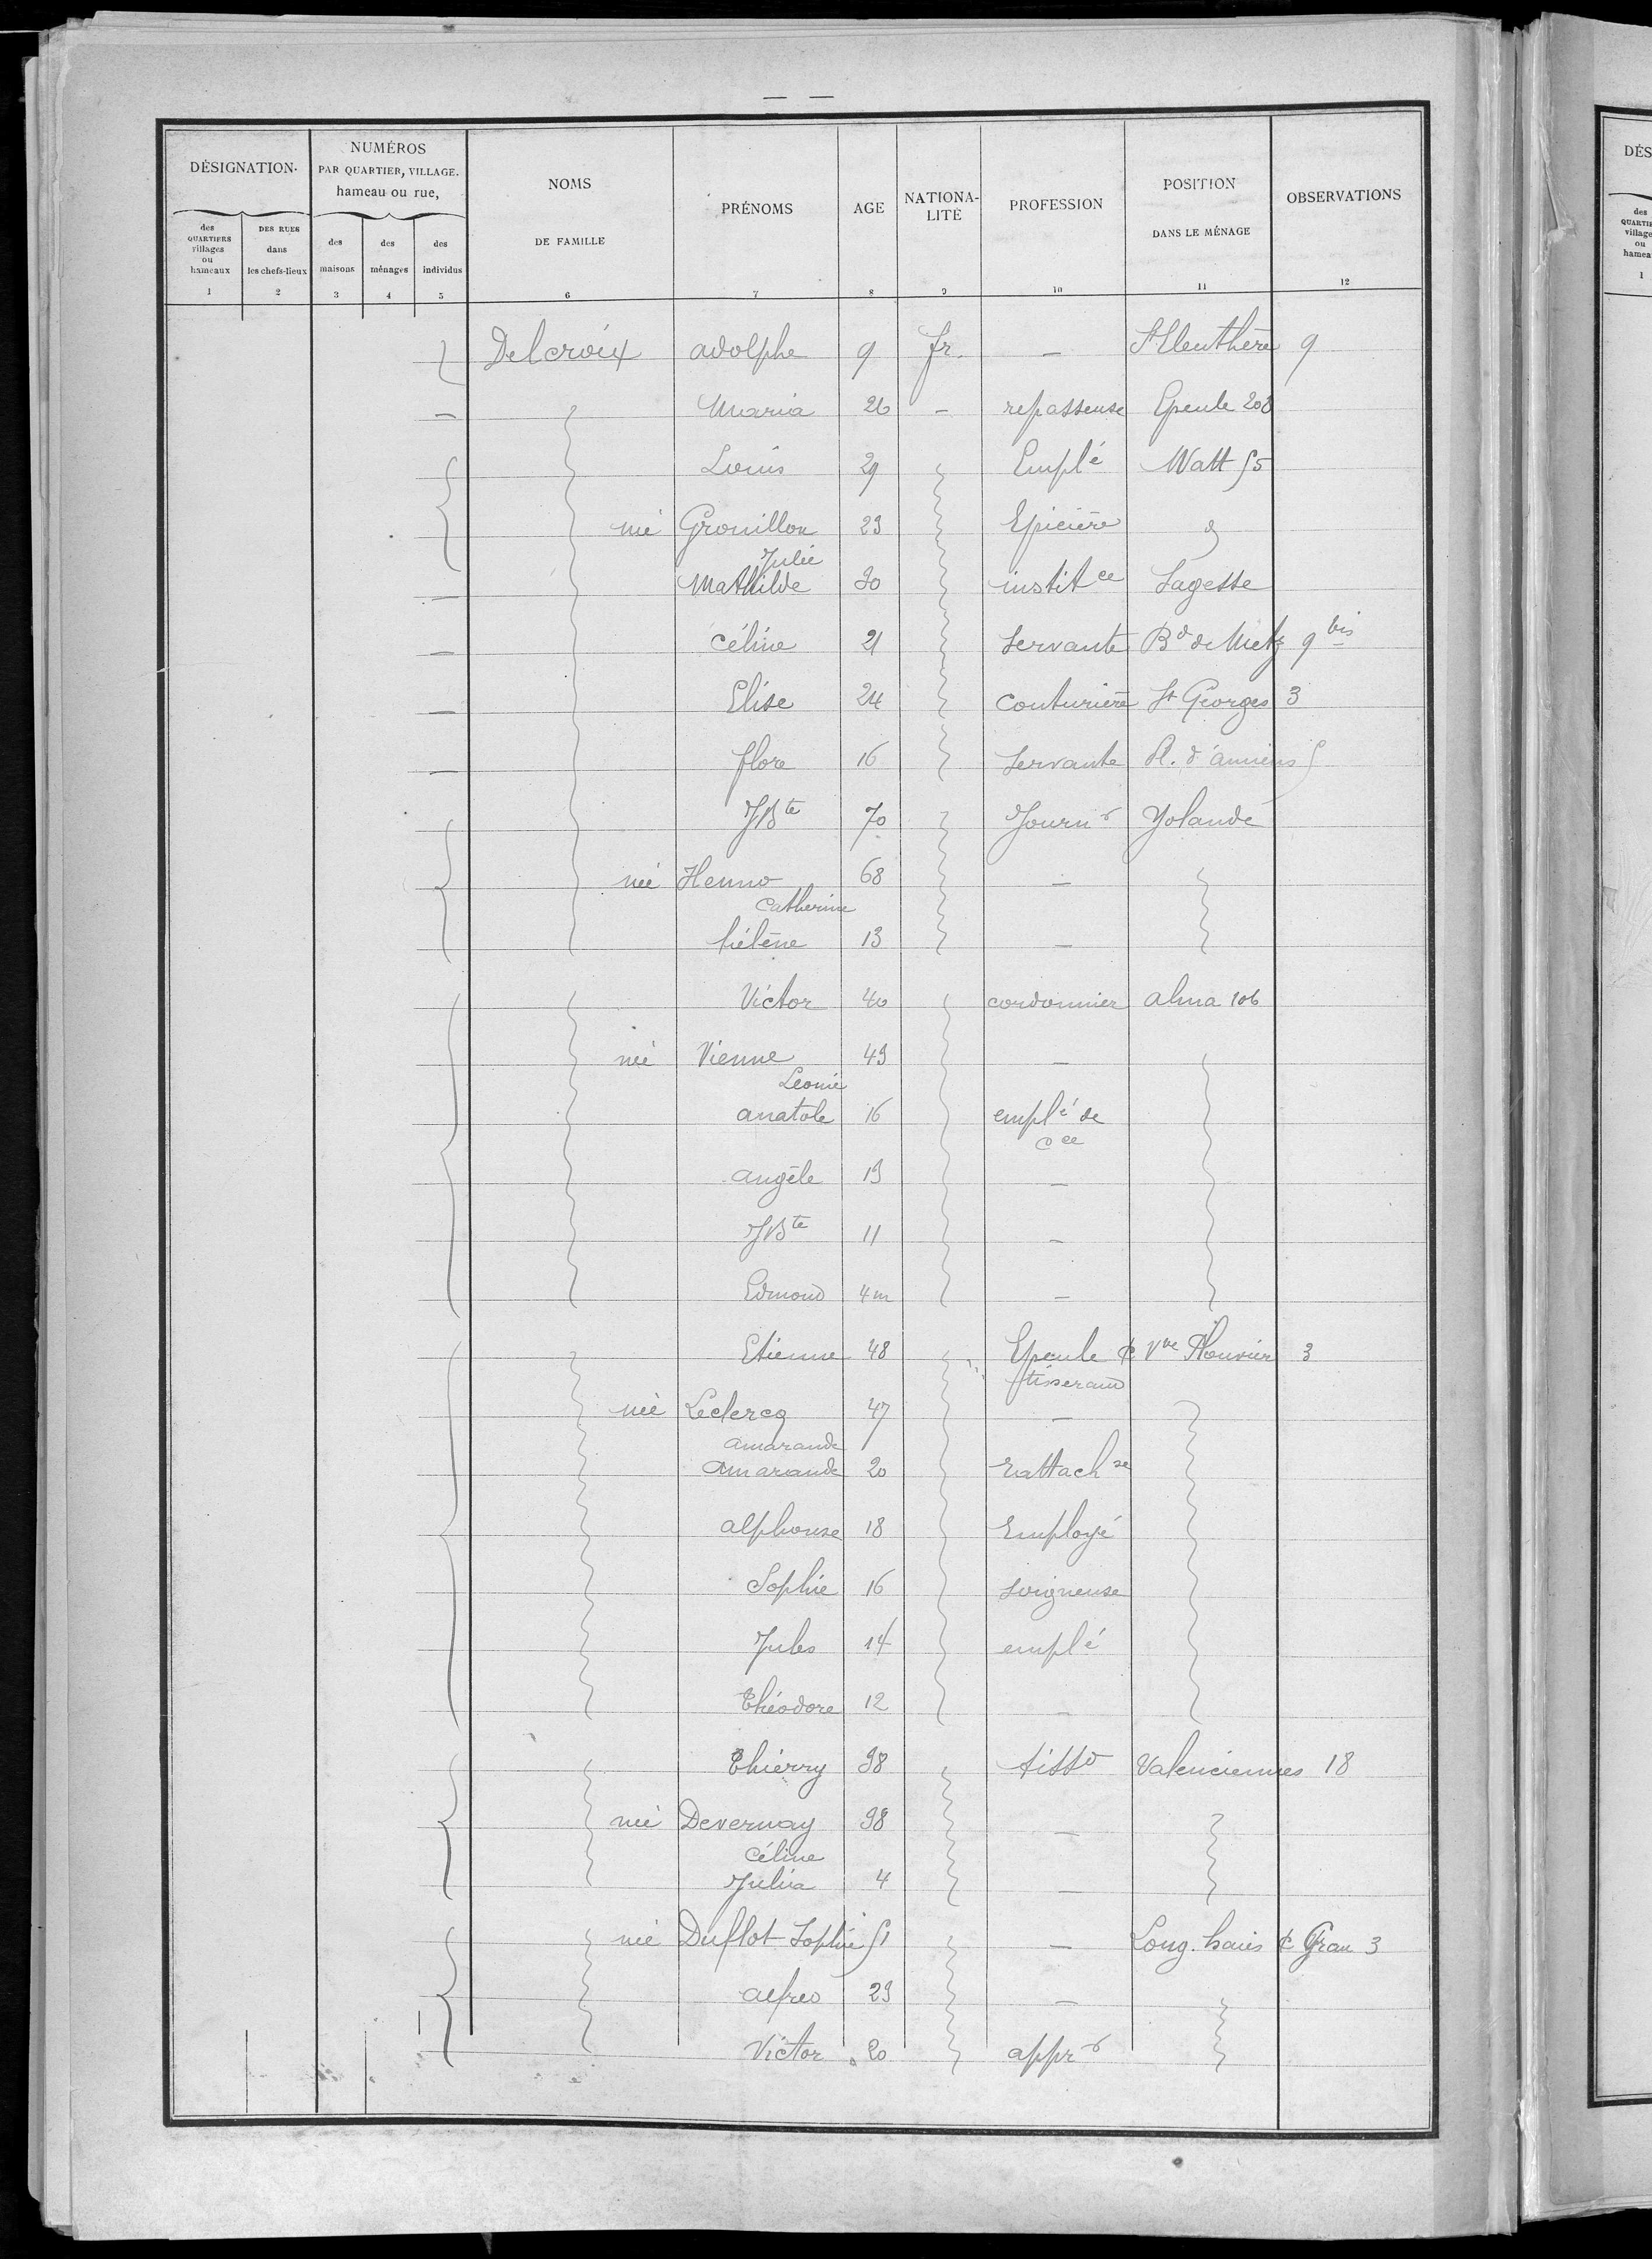 — —
DÉSIGNATION.
des QUARTIERS villages ou hameaux
1
DES RUES dans les chefs-lieux
2
NUMÉROS
PAR QUARTIER, VILLAGE.
hameau ou rue,
des maisons
3
des ménages
4
des individus
5
NOMS
DE FAMILLE
6
PRÉNOMS
7
AGE
8
NATIONA-
LITÉ
9
PROFESSION
10
POSITION
DANS LE MÉNAGE
11
OBSERVATIONS
12
Delcroix adolphe 9 fr. — St Eleuthère 9
Maria 26 — repasseuse Epeule 208
Louis 29 Emplé Watt 55
née Grouillon 23 Epicière
Julie
Mathilde 30 institce Sagesse
Céline 21 servante Bd de Metz 9 bis
Elise 24 couturière St Georges 3
flore 16 servante Pl. d'amiens 5
JBte 70 Journr Yolande
née Henno 68 —
Catherine
hélène 13 —
Victor 40 cordonnier alma 106
née Vienne 43 —
Leonie
anatole 16 emplé de
cce
angèle 13 —
JBte 11 —
Edmond 4m —
Etienne 48 Epeule c Vve Plouvier 3
tisserand
née Leclercq 47 —
amarande
amarande 20 rattachse
alphonse 18 Employé
Sophie 16 soigneuse
Jules 14 emplé
Théodore 12 —
Thierry 38 tissd Valenciennes 18
née Devernay 38 —
Céline
Julia 4 —
née Duflot Sophie 51 — Long. haies c Grau 3
alfred 23 —
Victor 20 apprr
DÉS
des
QUARTIE
village
ou
hamea
1